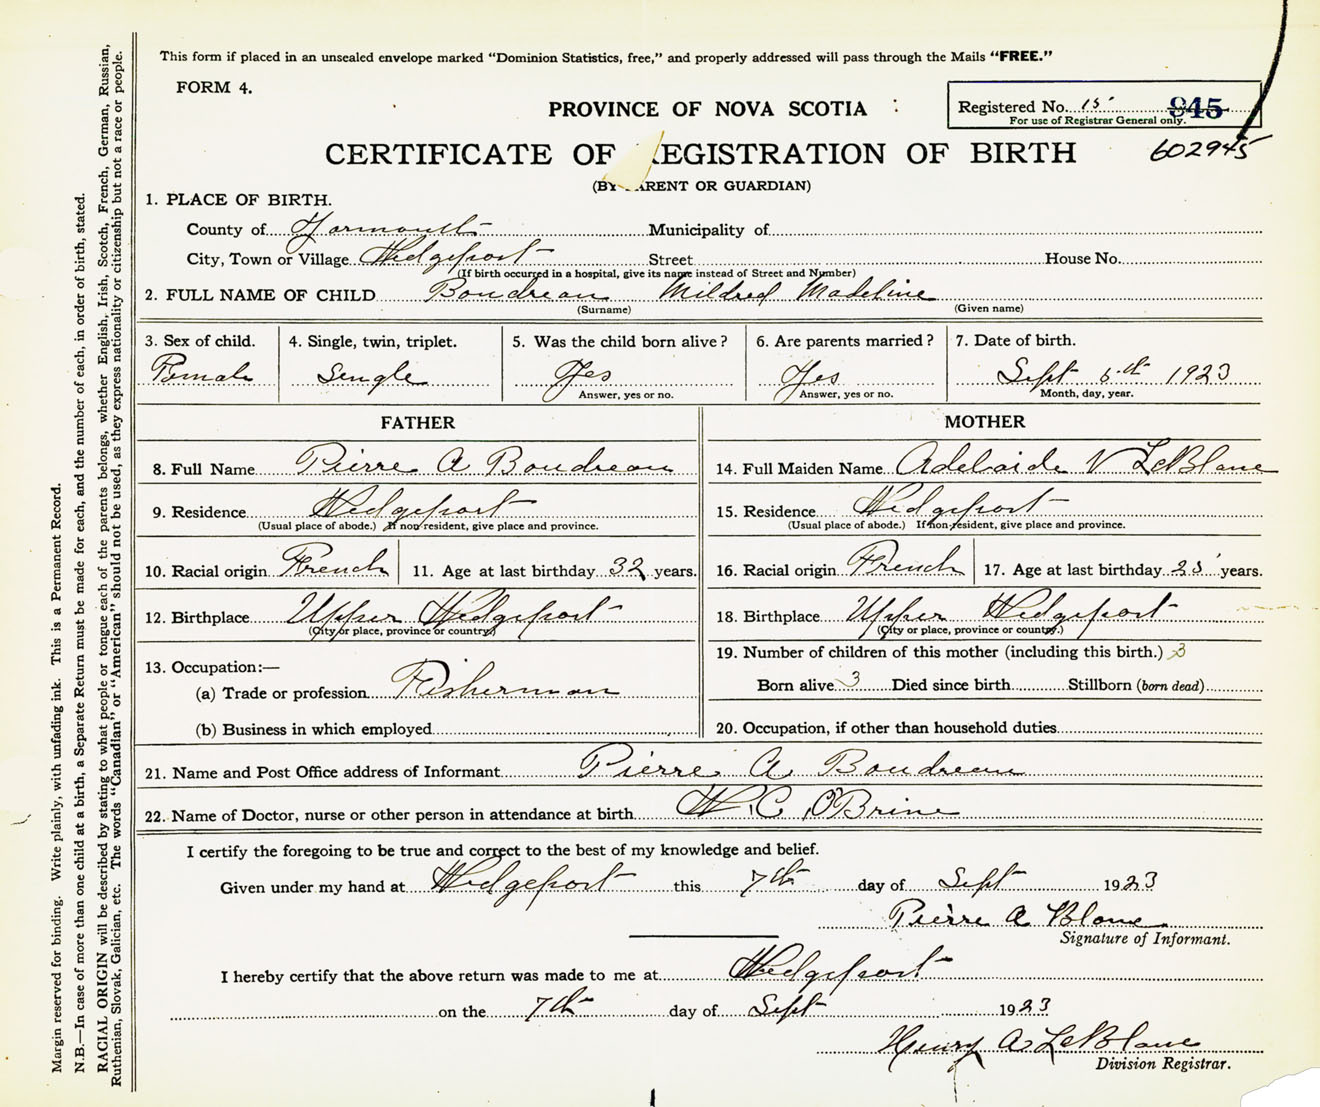 This form if placed in an unsealed envelope marked "Dominion Statistics, free," and properly addressed will pass through the Mails "FREE."
FORM 4.
PROVINCE OF NOVA SCOTIA
Registered No. 15 945
For use of Registrar General only.
602945
CERTIFICATE OF REGISTRATION OF BIRTH
(BY PARENT OR GUARDIAN)
1. PLACE OF BIRTH.
County of Yarmouth Municipality of
City, Town or Village Wedgeport Street House No.
(If birth occurred in a hospital, give its name instead of Street and Number)
2. FULL NAME OF CHILD Boudreau Mildred Madeline
(Surname) (Given name)
3. Sex of child. 4. Single, twin, triplet. 5. Was the child born alive? 6. Are parents married? 7. Date of birth.
Female Single Yes Yes Sept 5th 1923
Answer, yes or no. Answer, yes or no. Month, day, year.
FATHER MOTHER
8. Full Name Pierre A Boudreau 14. Full Maiden Name Adelaide V LeBlanc
9. Residence Wedgeport 15. Residence Wedgeport
(Usual place of abode.) If non-resident, give place and province. (Usual place of abode.) If non-resident, give place and province.
10. Racial origin French 11. Age at last birthday 32 years. 16. Racial origin French 17. Age at last birthday 25 years.
12. Birthplace Upper Wedgeport 18. Birthplace Upper Wedgeport
(City or place, province or country.) (City or place, province or country.)
13. Occupation:— 19. Number of children of this mother (including this birth.) 3
(a) Trade or profession Fisherman Born alive 3 Died since birth Stillborn (born dead)
(b) Business in which employed 20. Occupation, if other than household duties
21. Name and Post Office address of Informant Pierre A Boudreau
22. Name of Doctor, nurse or other person in attendance at birth W. C. O'Brine
I certify the foregoing to be true and correct to the best of my knowledge and belief.
Given under my hand at Wedgeport this 7th day of Sept 1923
Pierre A Blanc
Signature of Informant.
I hereby certify that the above return was made to me at Wedgeport
on the 7th day of Sept 1923
Henry A LeBlanc
Division Registrar.
Margin reserved for binding. Write plainly, with unfading ink. This is a Permanent Record.
N.B.—In case of more than one child at a birth, a Separate Return must be made for each, and the number of each, in order of birth, stated.
RACIAL ORIGIN will be described by stating to what people or tongue each of the parents belongs, whether English, Irish, Scotch, French, German, Russian,
Ruthenian, Slovak, Galician, etc. The words "Canadian" or "American" should not be used, as they express nationality or citizenship but not a race or people.